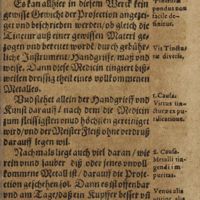 Es kan allhier in diesem Werck kein
gewisse Gewicht der Projection angezei-
get und beschrieben werden, ob gleich die
Tinctur auß einer gewissen Materi ge-
zogen und bereitet wordẽ, durch gebühr-
liche Instrument, Handgriffe, maß und
weise. Dann diese Medicin tingiert biß-
weilen dreissig theil eines vollkommenen
Metalles.
Und stehet allein der Handgriff und
Kunst darauff / nach dem die Medicin
zum fleissigsten und höchsten gereiniget
wird / und der Meister Fleiß ohne verdruß
darauff legen wil.
Nachmals liegt auch viel daran / wie
rein unnd lauter diß oder jenes unvoll-
kommene Metall ist / darauff die Proje-
ction geschehen sol. Dann es ist offenbar
und am Tage / daß ein Kupffer besser uñ
pondus non
facile de-
finitur.
Vis Tinctu-
ræ diversa.
1. Causa:
Virtus tin-
cturæ ex pu-
rificatione.
2. Causa.
Metalli tin-
gendi im-
puritas.